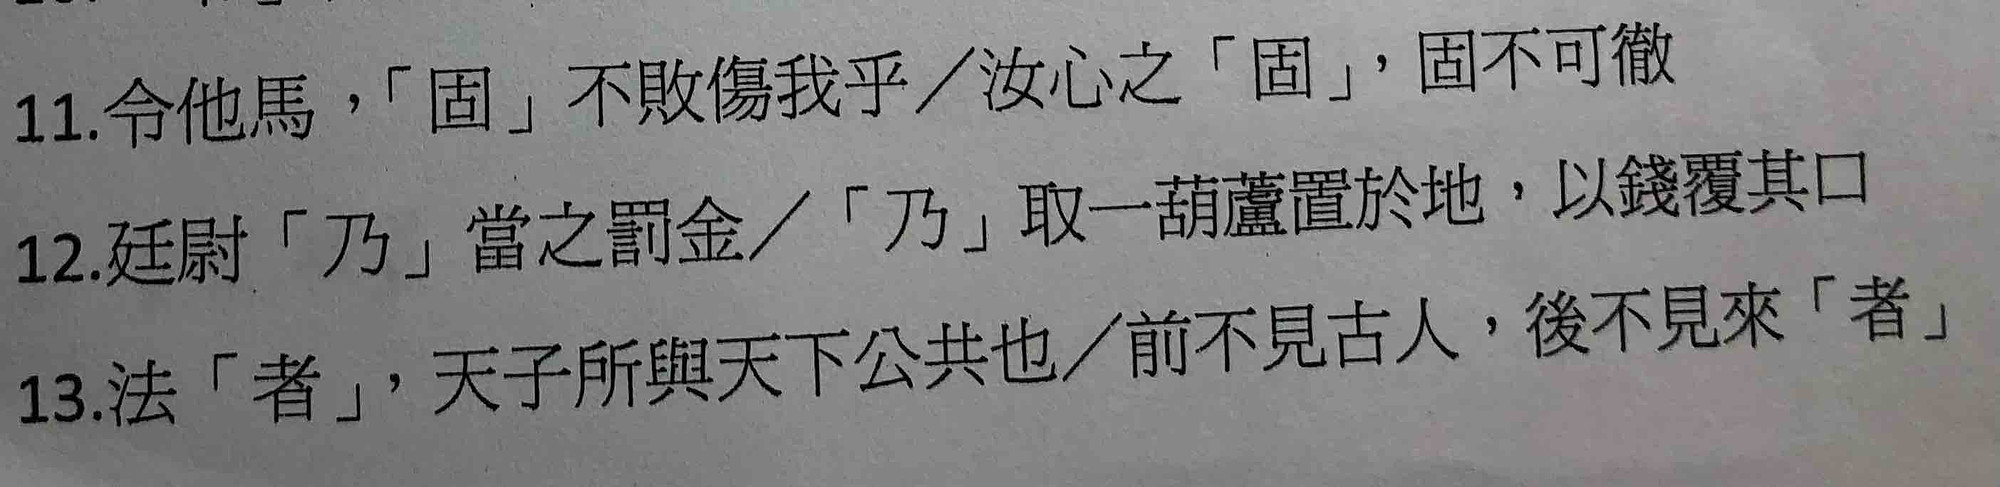 11.令他馬，「固」不敗傷我乎／汝心之「固」，固不可徹
12.廷尉「乃」當之罰金／「乃」取一葫蘆置於地，以錢覆其口
13.法「者」，天子所與天下公共也／前不見古人，後不見來「者」